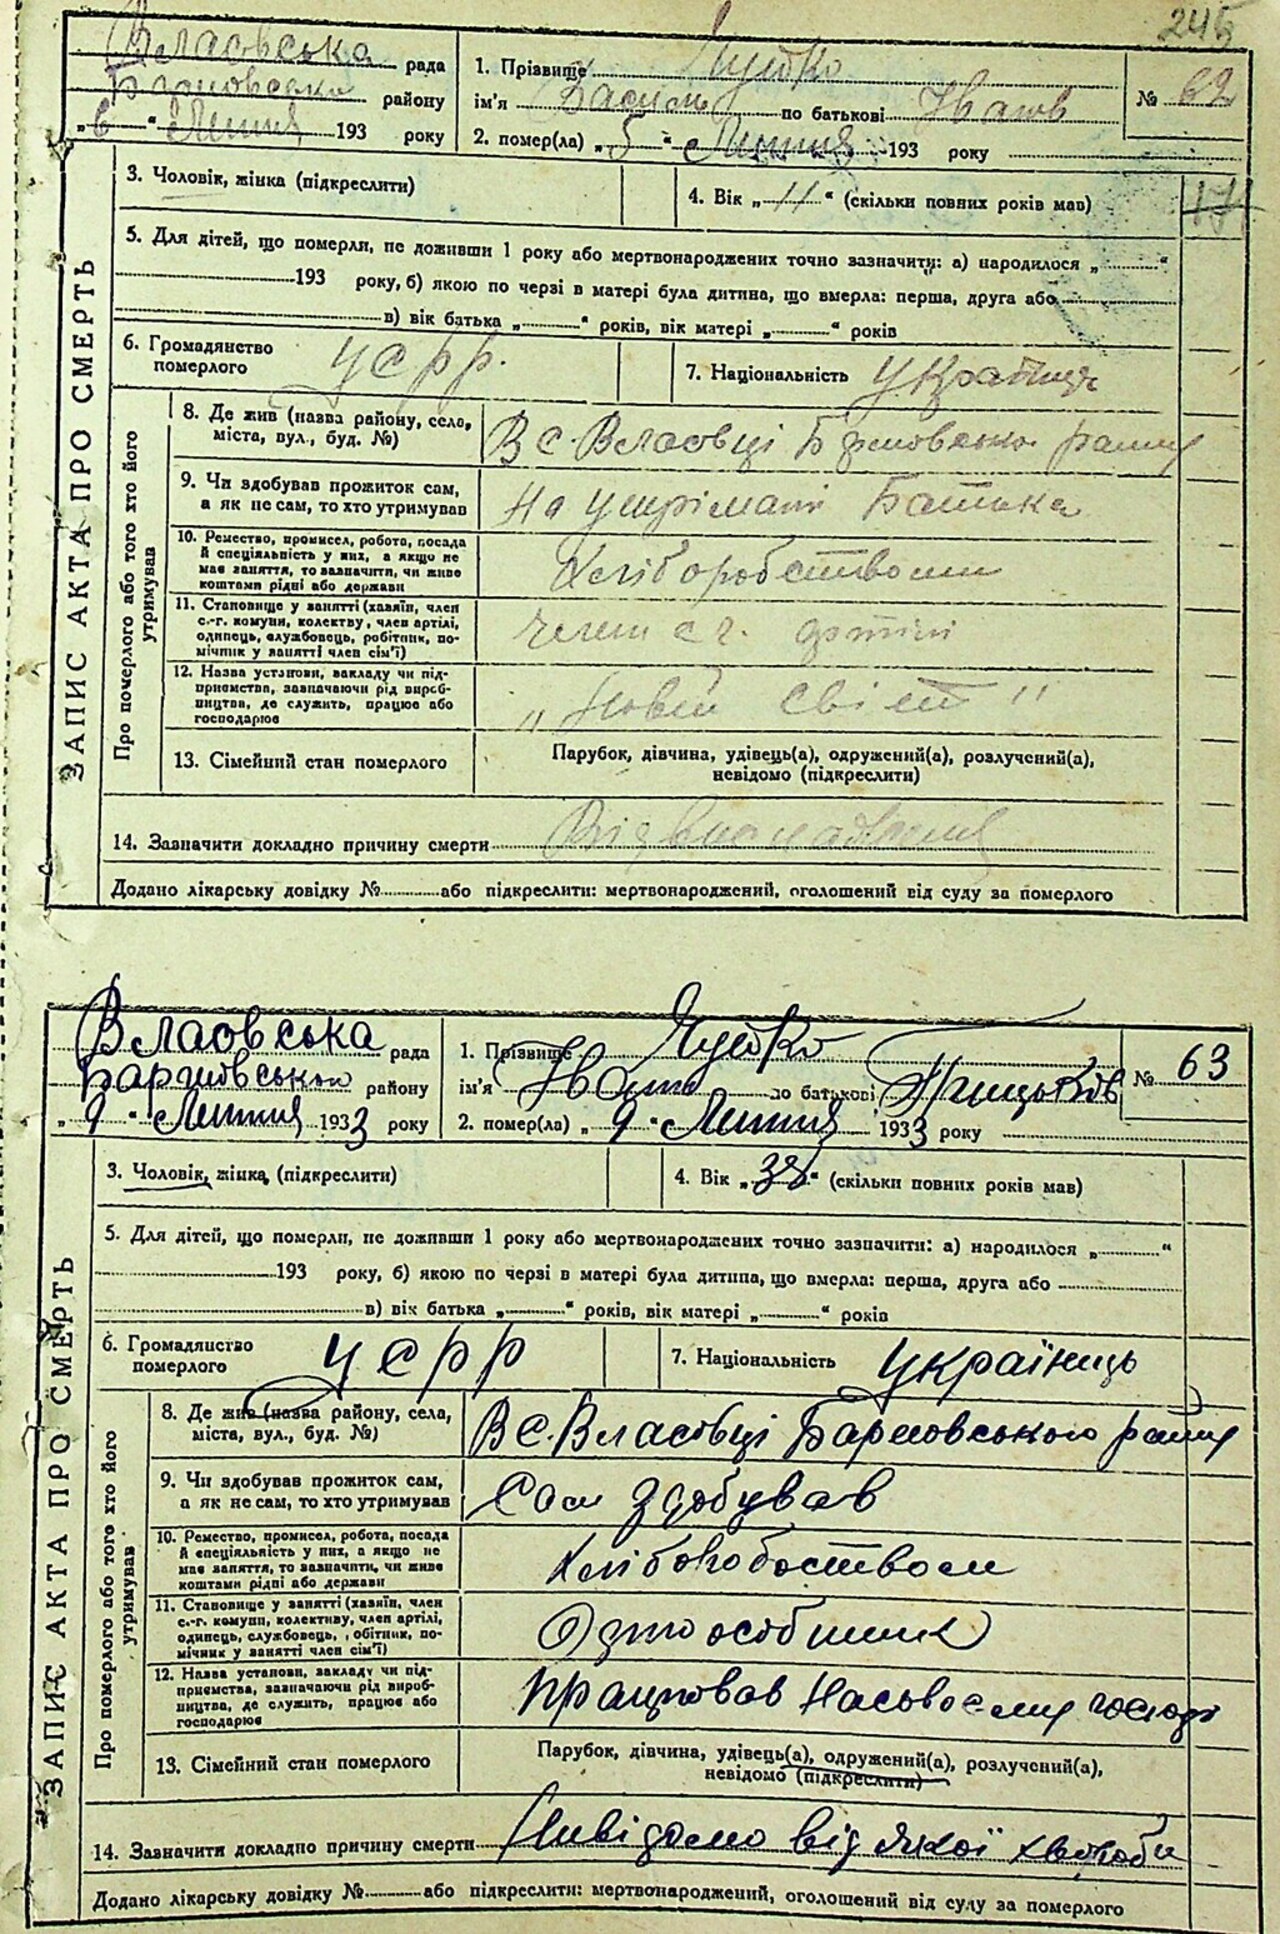 245
Власовська рада
району
"6" Липня 193 року
1. Прізвище
ім'я Василь по батькові Іванов
2. помер(ла) "5" Липня 193 року
№ 62
ЗАПИС АКТА ПРО СМЕРТЬ
3. Чоловік, жінка (підкреслити)
4. Вік "11" (скільки повних років мав)
5. Для дітей, що померли, не доживши 1 року або мертвонароджених точно зазначити: а) народилося „ “
193 року, б) якою по черзі в матері була дитина, що вмерла: перша, друга або
в) вік батька „ “ років, вік матері „ “ років
6. Громадянство
померлого
УСРР.
7. Національність Українець
Про померлого або того хто його
утримував
8. Де жив (назва району, село,
міста, вул., буд. №)
В с. Власовці
9. Чи здобував прожиток сам,
а як не сам, то хто утримував
На утріманні Батька
10. Ремество, промисел, робота, посада
й спеціяльність у них, а якщо не
має заняття, то зазначити, чи живе
коштами рідні або держави
Хліборобством
11. Становище у занятті (хазяїн, член
с.-г. комуни, колективу, член артілі,
одинець, службовець, робітник, по-
мічник у занятті член сім'ї)
член с г. артілі
12. Назва установи, закладу чи під-
приємства, зазначаючи рід вироб-
ництва, де служить, працює або
господарює
„ Новій Світ "
13. Сімейний стан померлого
Парубок, дівчина, удівець(а), одружений(а), розлучений(а),
невідомо (підкреслити)
14. Зазначити докладно причину смерти
Додано лікарську довідку № або підкреслити: мертвонароджений, оголошений від суду за померлого
Власовська рада
району
„ 9 " Липня 1933 року
1. Прізвище
ім'я Іван по батькові Грицьков
2. помер(ла) „ 9 " Липня 1933 року
№ 63
ЗАПИС АКТА ПРО СМЕРТЬ
3. Чоловік, жінка, (підкреслити)
4. Вік „38“ (скільки повних років мав)
5. Для дітей, що померли, не доживши 1 року або мертвонароджених точно зазначити: а) народилося „ “
193 року, б) якою по черзі в матері була дитина, що вмерла: перша, друга або
в) вік батька „ “ років, вік матері „ “ років
6. Громадянство
померлого
УСРР
7. Національність Українець
Про померлого або того хто його
утримував
8. Де жив (назва району, села,
міста, вул., буд. №)
В с. Власовці
9. Чи здобував прожиток сам,
а як не сам, то хто утримував
Сам здобував
10. Ремество, промисел, робота, посада
й спеціяльність у них, а якщо не
має заняття, то зазначити, чи живе
коштами рідні або держави
Хліборобством
11. Становище у занятті (хазяїн, член
с.-г. комуни, колективу, член артілі,
одинець, службовець, робітник, по-
мічник у занятті член сім'ї)
Одноосібник
12. Назва установи, закладу чи під-
приємства, зазначаючи рід вироб-
ництва, де служить, працює або
господарює
Працював
13. Сімейний стан померлого
Парубок, дівчина, удівець(а), одружений(а), розлучений(а),
невідомо (підкреслити)
14. Зазначити докладно причину смерти Нивідомо від якої хвороби
Додано лікарську довідку № або підкреслити: мертвонароджений, оголошений від суду за померлого